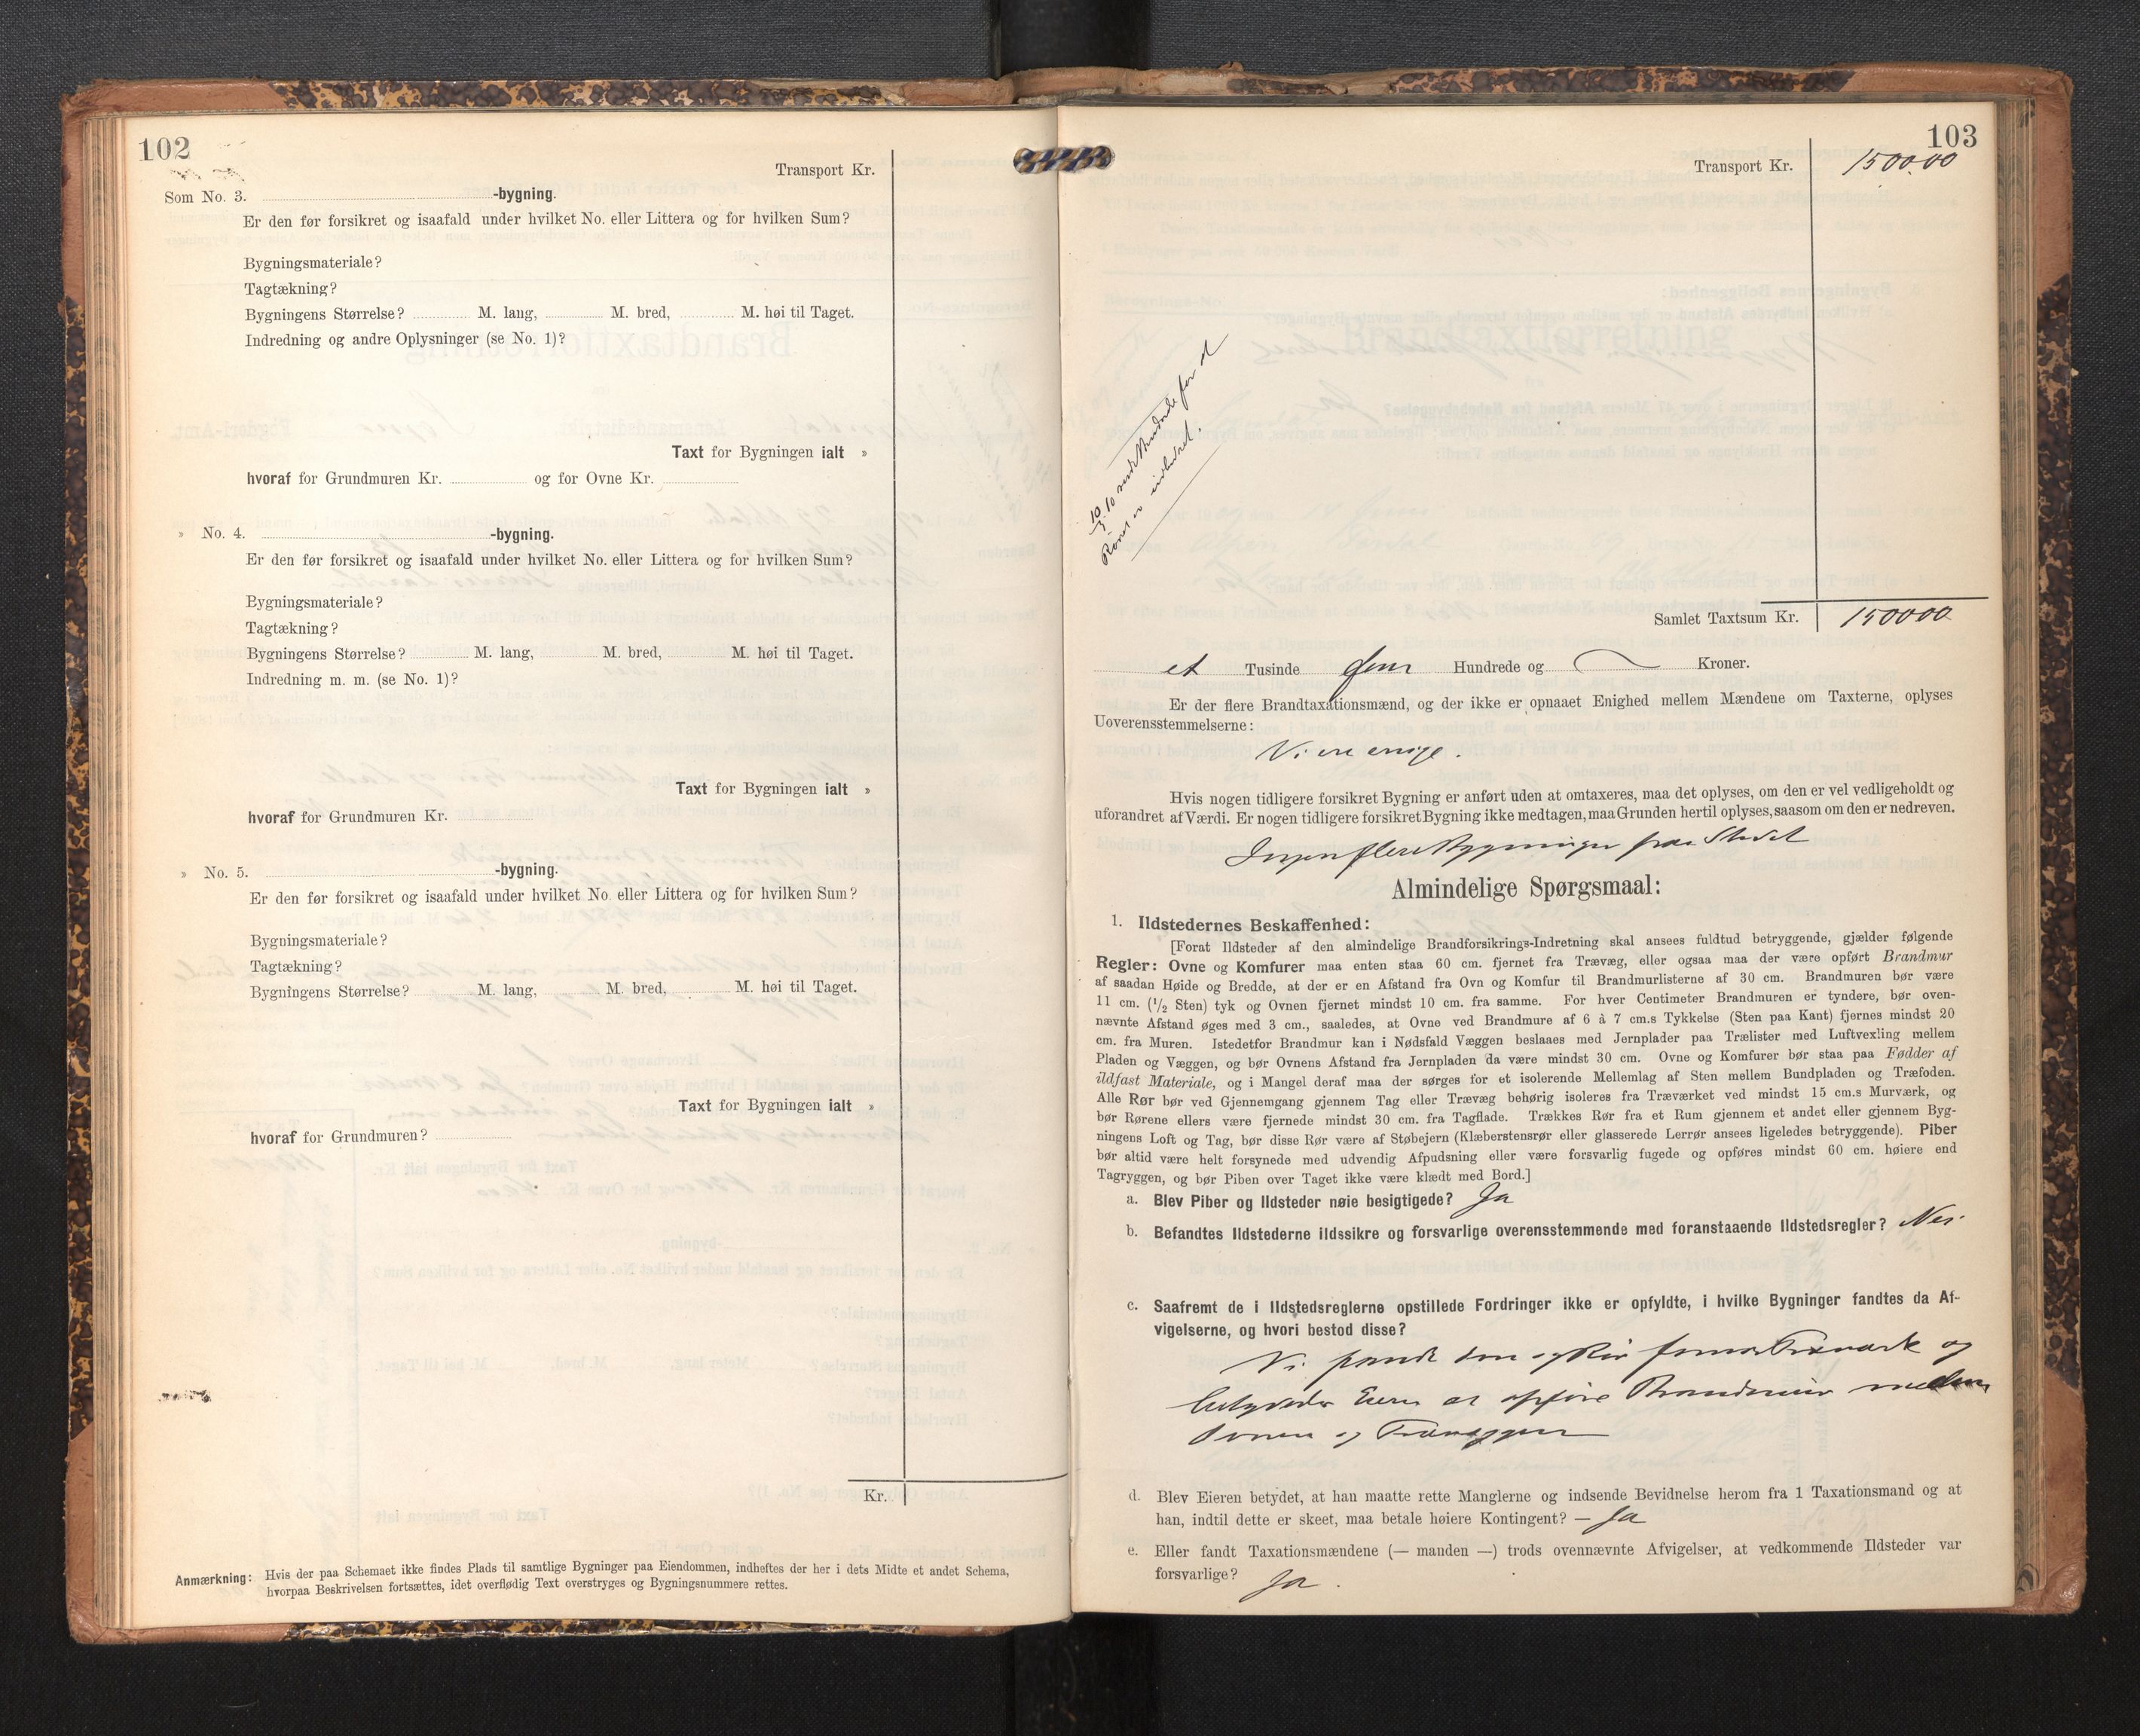 102
Transport Kr.
Som No. 3. -bygning.
Er den før forsikret og isaafald under hvilket No. eller Littera og for hvilken Sum?
Bygningsmateriale?
Tagtækning?
Bygningens Størrelse? M. lang, M. bred, M. høi til Taget.
Indredning og andre Oplysninger (se No. 1)?
Taxt for Bygningen ialt »
hvoraf for Grundmuren Kr. og for Ovne Kr.
» No. 4. -bygning.
Er den før forsikret og isaafald under hvilket No. eller Littera og for hvilken Sum?
Bygningsmateriale?
Tagtækning?
Bygningens Størrelse? M. lang, M. bred, M. høi til Taget.
Indredning m. m. (se No. 1)?
Taxt for Bygningen ialt »
hvoraf for Grundmuren Kr.
» No. 5. -bygning.
Er den før forsikret og isaafald under hvilket No. eller Littera og for hvilken Sum?
Bygningsmateriale?
Tagtækning?
Bygningens Størrelse? M. lang, M. bred, M. høi til Taget.
Taxt for Bygningen ialt »
hvoraf for Grundmuren?
Kr.
Anmærkning: Hvis der paa Schemaet ikke findes Plads til samtlige Bygninger paa Eiendommen, indheftes der her i dets Midte et andet Schema,
hvorpaa Beskrivelsen fortsættes, idet overflødig Text overstryges og Bygningsnummere rettes.
103
Transport Kr. 1500.00
10/3 10 for
er
Samlet Taxtsum Kr. 1500 00
et Tusinde fem Hundrede og Kroner.
Er der flere Brandtaxationsmænd, og der ikke er opnaaet Enighed mellem Mændene om Taxterne, oplyses
Uoverensstemmelserne:
Vi ere enige.
Hvis nogen tidligere forsikret Bygning er anført uden at omtaxeres, maa det oplyses, om den er vel vedligeholdt og
uforandret af Værdi. Er nogen tidligere forsikret Bygning ikke medtagen, maa Grunden hertil oplyses, saasom om den er nedreven.
Ingen flere Bygninger paa Stedet
Almindelige Spørgsmaal:
1. Ildstedernes Beskaffenhed:
[Forat Ildsteder af den almindelige Brandforsikrings-Indretning skal ansees fuldtud betryggende, gjælder følgende
Regler: Ovne og Komfurer maa enten staa 60 cm. fjernet fra Trævæg, eller ogsaa maa der være opført Brandmur
af saadan Høide og Bredde, at der er en Afstand fra Ovn og Komfur til Brandmurlisterne af 30 cm. Brandmuren bør være
11 cm. (1/2 Sten) tyk og Ovnen fjernet mindst 10 cm. fra samme. For hver Centimeter Brandmuren er tyndere, bør oven-
nævnte Afstand øges med 3 cm., saaledes, at Ovne ved Brandmure af 6 à 7 cm.s Tykkelse (Sten paa Kant) fjernes mindst 20
cm. fra Muren. Istedetfor Brandmur kan i Nødsfald Væggen beslaaes med Jernplader paa Trælister med Luftvexling mellem
Pladen og Væggen, og bør Ovnens Afstand fra Jernpladen da være mindst 30 cm. Ovne og Komfurer bør staa paa Fødder af
ildfast Materiale, og i Mangel deraf maa der sørges for et isolerende Mellemlag af Sten mellem Bundpladen og Træfoden.
Alle Rør bør ved Gjennemgang gjennem Tag eller Trævæg behørig isoleres fra Træværket ved mindst 15 cm.s Murværk, og
bør Rørene ellers være fjernede mindst 30 cm. fra Tagflade. Trækkes Rør fra et Rum gjennem et andet eller gjennem Byg-
ningens Loft og Tag, bør disse Rør være af Støbejern (Klæberstensrør eller glasserede Lerrør ansees ligeledes betryggende). Piber
bør altid være helt forsynede med udvendig Afpudsning eller være forsvarlig fugede og opføres mindst 60 cm. høiere end
Tagryggen, og bør Piben over Taget ikke være klædt med Bord.]
a. Blev Piber og Ildsteder nøie besigtigede? Ja
b. Befandtes Ildstederne ildssikre og forsvarlige overensstemmende med foranstaaende Ildstedsregler? Nei.
c. Saafremt de i Ildstedsreglerne opstillede Fordringer ikke er opfyldte, i hvilke Bygninger fandtes da Af-
vigelserne, og hvori bestod disse?
Vi og Rør Træværk og
Eieren at opføre Brandmur mellem
Ovnen og Trævæggen
d. Blev Eieren betydet, at han maatte rette Manglerne og indsende Bevidnelse herom fra 1 Taxationsmand og at
han, indtil dette er skeet, maa betale høiere Kontingent? — Ja
e. Eller fandt Taxationsmændene (— manden —) trods ovennævnte Afvigelser, at vedkommende Ildsteder var
forsvarlige? Ja.